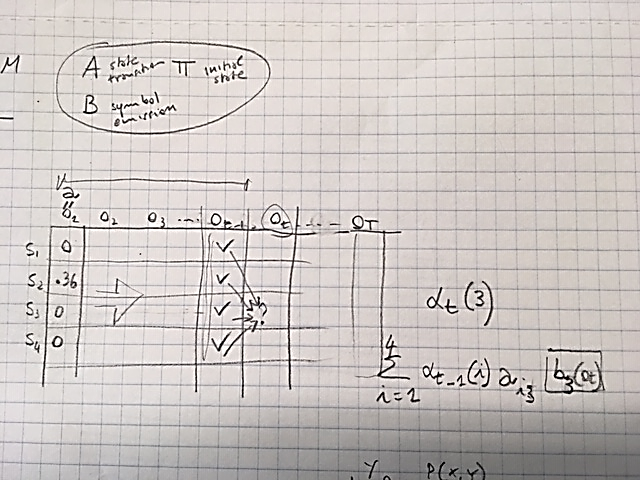 M
A state transition Π initial state
B symbol emission
a
"
O1 O2 O3 ... Ot-1 Ot ---- OT
S1 0 ✓
S2 .36 ✓
S3 0 ✓ ?
S4 0 ✓
αt(3)
4
Σ αt-1(i) ai3 b3(Ot)
i=1
P(X,Y)